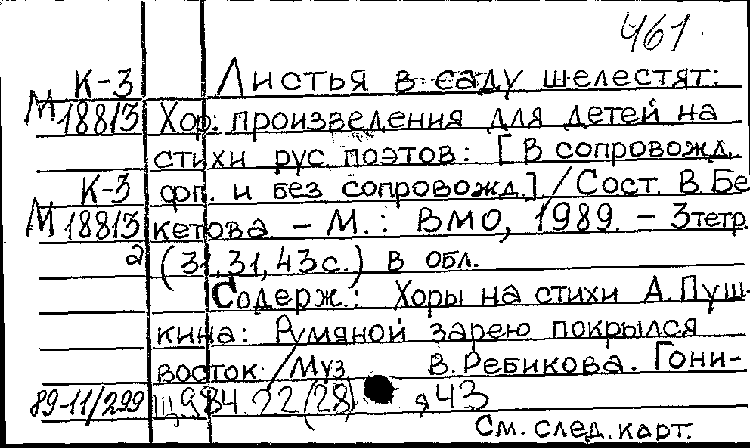 461.
К-3 Листья в саду шелестят:
М 18813 Хор. произведения для детей на
стихи рус. поэтов: [В сопровожд.
К-3 фп. и без сопровожд.] / Сост. В. Бе
М 18813 кетова – М.: ВМО, 1989. – 3 тетр.
2 (31, 31, 43 с.) В обл.
Содерж.: Хоры на стихи А. Пуш-
кина: Румяной зарею покрылся
восток / Муз В. Ребикова. Гони-
89-11/299 Щ984.92(28) я43
См. след. карт.